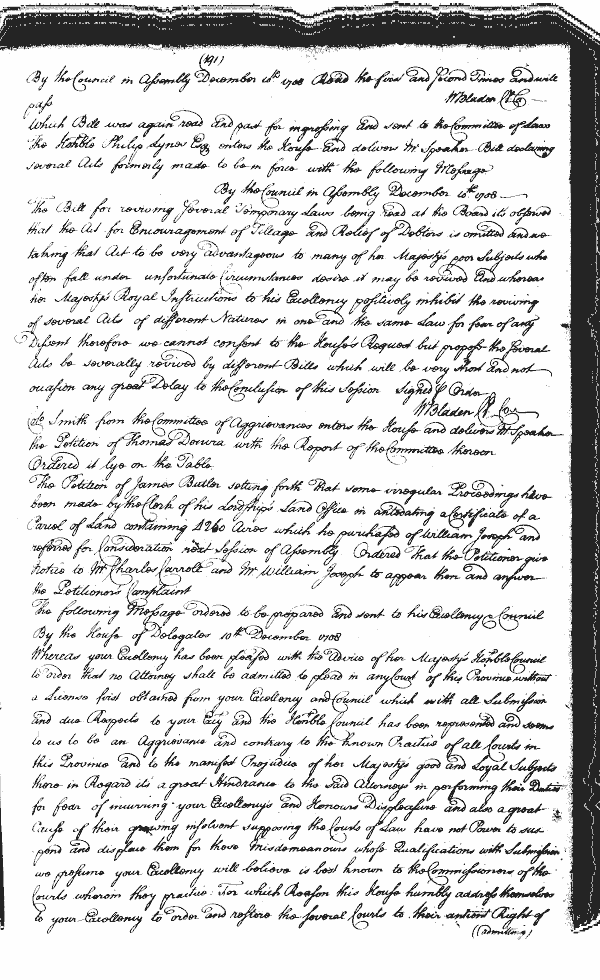 (191)
By the Council in Assembly December 10th 1708 Read the first and second Times and will
pass
W Bladen Cl Co
Which Bill was again read and past for ingrossing and sent to the Committee of Laws
The Honble Philip Lynes Esqr enters the House and delivers Mr Speaker Bill declaring
several Acts formerly made to be in force with the following Message
By the Council in Assembly December 10th 1708
The Bill for reviving several Temporary Laws being read at the Board it's observed
that the Act for Encouragement of Tillage and Relief of Debtors is omitted and we
taking that Act to be very advantageous to many of her Majesty's poor Subjects who
often fall under unfortunate Circumstances desire it may be revived And whereas
her Majesty's Royal Instructions to his Excellency positively inhibit the reviving
of several Acts of different Natures in one and the same Law for fear of any
Dissent therefore we cannot consent to the House's Request but propose the several
Acts be severally revived by different Bills which will be very short and not
occasion any great Delay to the Conclusion of this Session Signed Order
W Bladen Cl Co
Smith from the Committee of Aggrievances enters the House and delivers Mr Speaker
the Petition of Thomas with the Report of the Committee thereon
Ordered it lye on the Table
The Petition of James Butler setting forth That some irregular Proceedings have
been made by the Clerk of his Lordships Land Office in antedating a Certificate of a
Parcel of Land containing Acres which he purchased of William Joseph and
referred for Consideration next Session of Assembly Ordered That the Petitioner give
Notice to Mr Charles Carroll and Mr William Joseph to appear then and answer
the Petitioners Complaint
The following Message ordered to be prepared and sent to his Excellency & Council
By the House of Delegates 10th December 1708
Whereas your Excellency has been pleased with the Advice of her Majesty's Honble Council
to order that no Attorney shall be admitted to plead in any Court of this Province without
a License first obtained from your Excellency and Council which with all Submission
and due Respects to your Excy and the Honble Council has been represented and seems
to us to be an Aggrievance and contrary to the known Practice of all Courts in
this Province and to the manifest Prejudice of her Majesty's good and Loyal Subjects
there in Regard it's a great Hindrance to the said Attorneys in performing their Duties
for fear of incurring your Excellency's and Honours Displeasure and also a great
Cause of their growing insolvent supposing the Courts of Law have not Power to sus
pend and displace them for those Misdemeanours whose Qualifications with Submission
we presume your Excellency will believe is best known to the Commissioners of the
Courts wherein they practice: For which Reason this House humbly address themselves
to your Excellency to order and restore the several Courts to their antient Right of
(admitting)